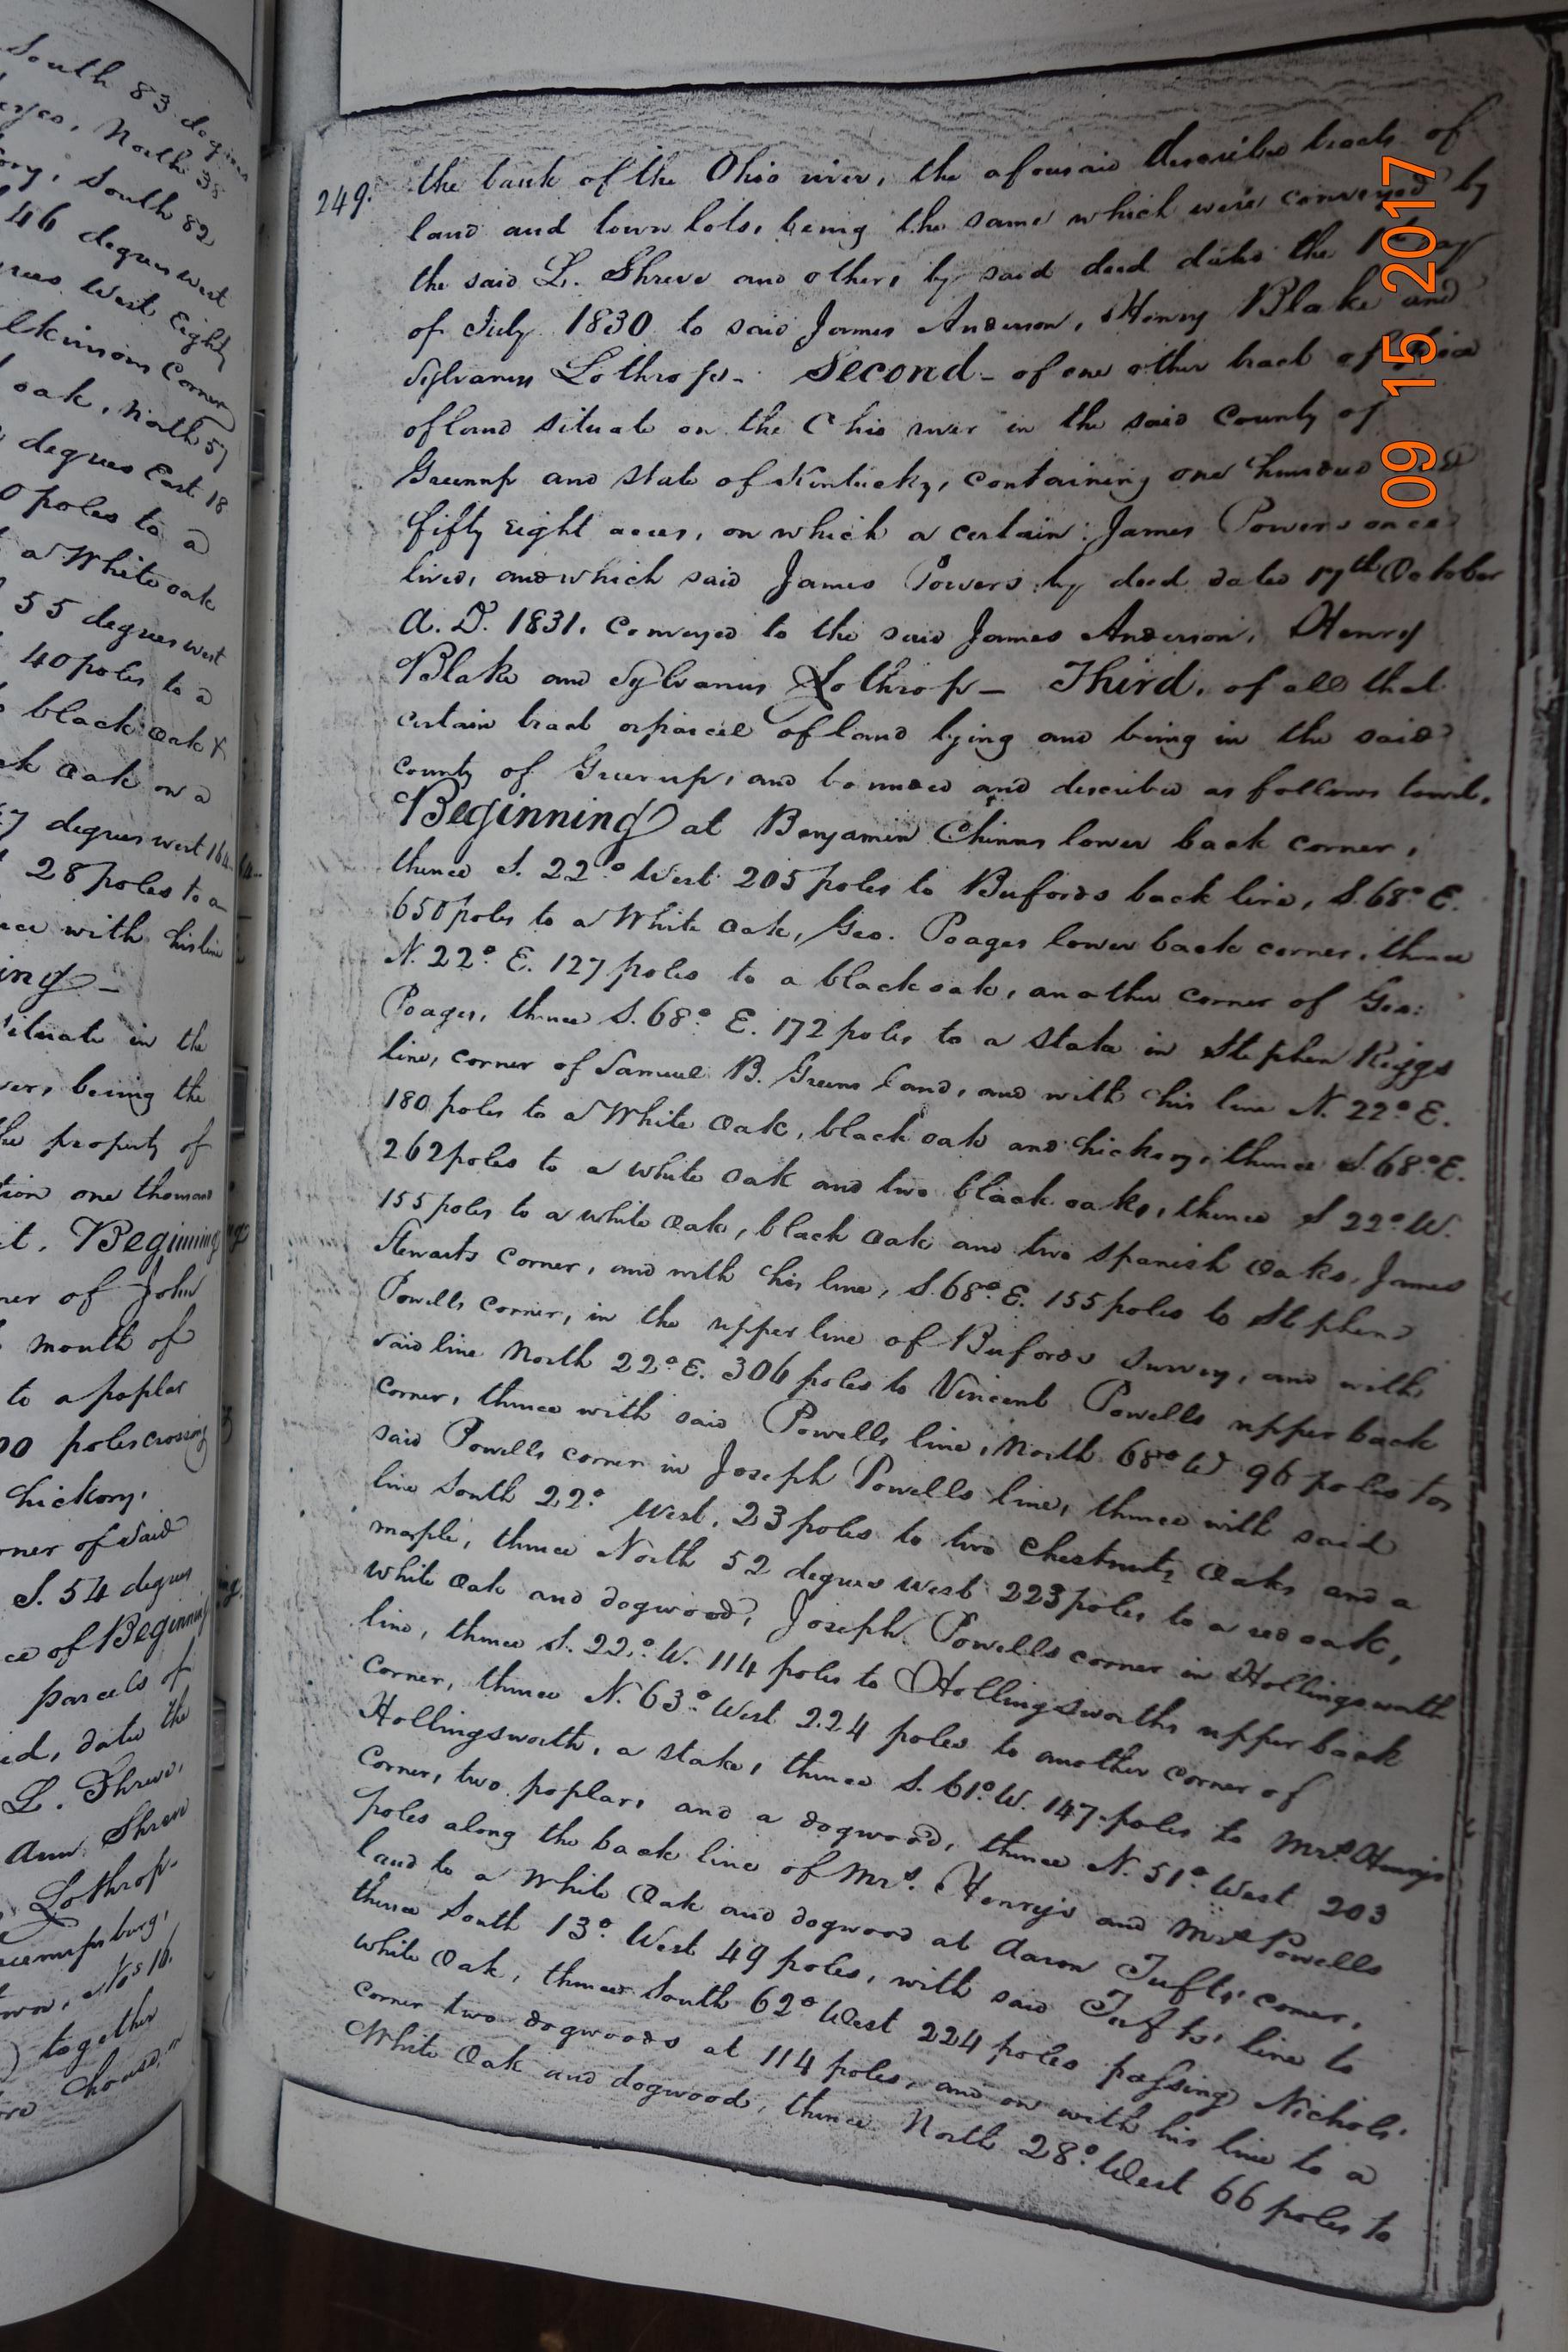 South 83 degrees
North 38
South 82
46 degrees west
West Eighty
lkinsons Corner
oak, North 57
degrees East 18
0 poles to a
a White oak
55 degrees west
40 poles to a
black oak &
oak on a
degrees west 164
28 poles to a
with his line
ing —
situate in the
being the
the property of
tion one thousand
it. Beginning
ner of John
mouth of
to a poplar
00 poles crossing
hickory,
rner of said
S. 54 degrees
ce of Beginning
parcels of
ed, date the
L. Shreve,
Ann Shreve
Lothrop.
together
house
249.
the bank of the Ohio river, the aforesaid described tracts of
land and town lots, being the same which were conveyed by
the said L. Shreve and others by said deed dated the 1st day
of July 1830 to said James Anderson, Henry Blake and
Sylvanus Lothrop — Second — of one other tract of piece
of land situate on the Ohio river in the said County of
Greenup and State of Kentucky, containing one hundred and
fifty eight acres, on which a certain James Powers once
lived, and which said James Powers by deed dated 17th October
A. D. 1831, conveyed to the said James Anderson, Henry
Blake and Sylvanus Lothrop — Third, of all that
certain tract or parcel of land lying and being in the said
county of Greenup, and bounded and described as follows towit,
Beginning at Benjamin Chinns lower back corner,
thence S. 22° West 205 poles to Bufords back line, S. 68° E.
650 poles to a White Oak, Geo. Poages lower back corner, thence
N. 22° E. 127 poles to a black oak, another corner of Geo:
Poages, thence S. 68° E. 172 poles to a stake in Stephen Riggs
line, corner of Samuel B. Greens land, and with his line N. 22° E.
180 poles to a White Oak, black oak and hickory, thence S. 68° E.
262 poles to a white oak and two black oaks, thence S 22° W.
155 poles to a white Oak, black Oak and two Spanish Oaks, James
Stewarts corner, and with his line, S. 68° E. 155 poles to Stephen
Powells corner, in the upper line of Bufords survey, and with
said line North 22° E. 306 poles to Vincent Powells upper back
corner, thence with said Powells line, North 68° W 96 poles to
said Powells corner in Joseph Powells line, thence with said
line South 22° West, 23 poles to two Chestnut Oaks and a
maple, thence North 52 degrees west 223 poles to a red oak,
white Oak and dogwood, Joseph Powells corner in Hollingsworth
line, thence S. 22° W. 114 poles to Hollingsworths upper back
corner, thence N. 63° West 224 poles to another corner of
Hollingsworth, a stake, thence S. 61° W. 147 poles to Mrs. Henrys
corner, two poplars and a dogwood, thence N. 51° West 203
poles along the back line of Mrs. Henry's and Mrs Powells
land to a White Oak and dogwood at Aaron Tufts' corner,
thence South 13° West 49 poles, with said Tufts' line to
white Oak, thence South 62° West 224 poles passing Nichols'
corner two dogwoods at 114 poles, and on with his line to a
White Oak and dogwood, thence North 28° West 66 poles to
09 15 2017